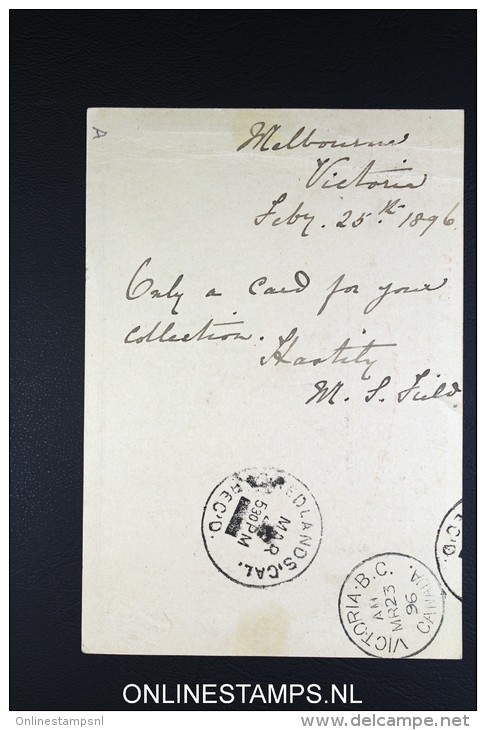 A
Melbourne
Victoria
Feby. 25th 1896
Only a card for your
collection.
Hastily
M. S. Field
REDLANDS, CAL.
MAR
530 PM
REC'D.
VICTORIA. B.C.
AM
MR 23
96
CANADA.
REC'D.
ONLINESTAMPS.NL
Onlinestampsnl
www.delcampe.net